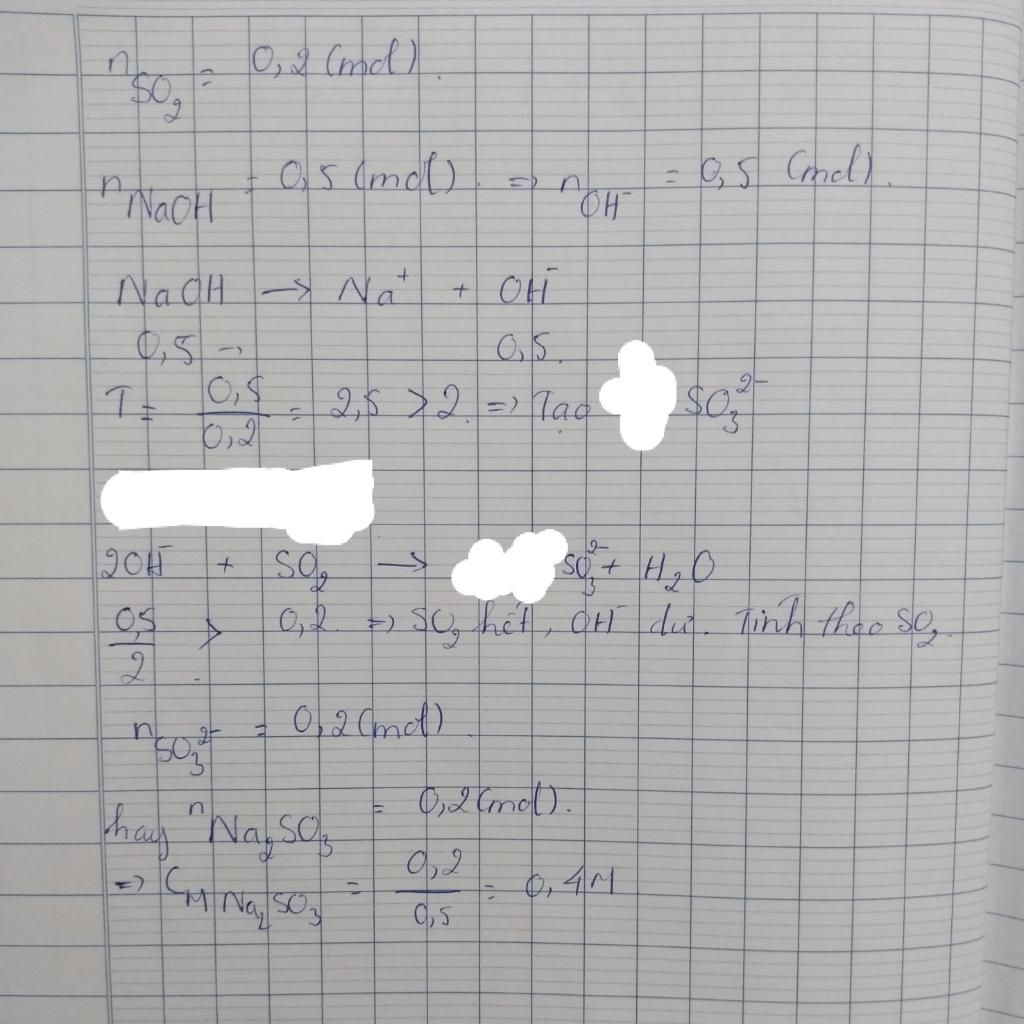 n_SO₂ = 0,2 (mol).
n_NaOH = 0,5 (mol). => n_OH⁻ = 0,5 (mol).
NaOH → Na⁺ + OH⁻
0,5 → 0,5.
T = 0,5/0,2 = 2,5 > 2. => Tạo SO₃²⁻
2OH⁻ + SO₂ → SO₃²⁻ + H₂O
0,5/2 > 0,2. => SO₂ hết, OH⁻ dư. Tính theo SO₂.
n_SO₃²⁻ = 0,2 (mol)
hay n_Na₂SO₃ = 0,2 (mol).
=> C_M Na₂SO₃ = 0,2/0,5 = 0,4M